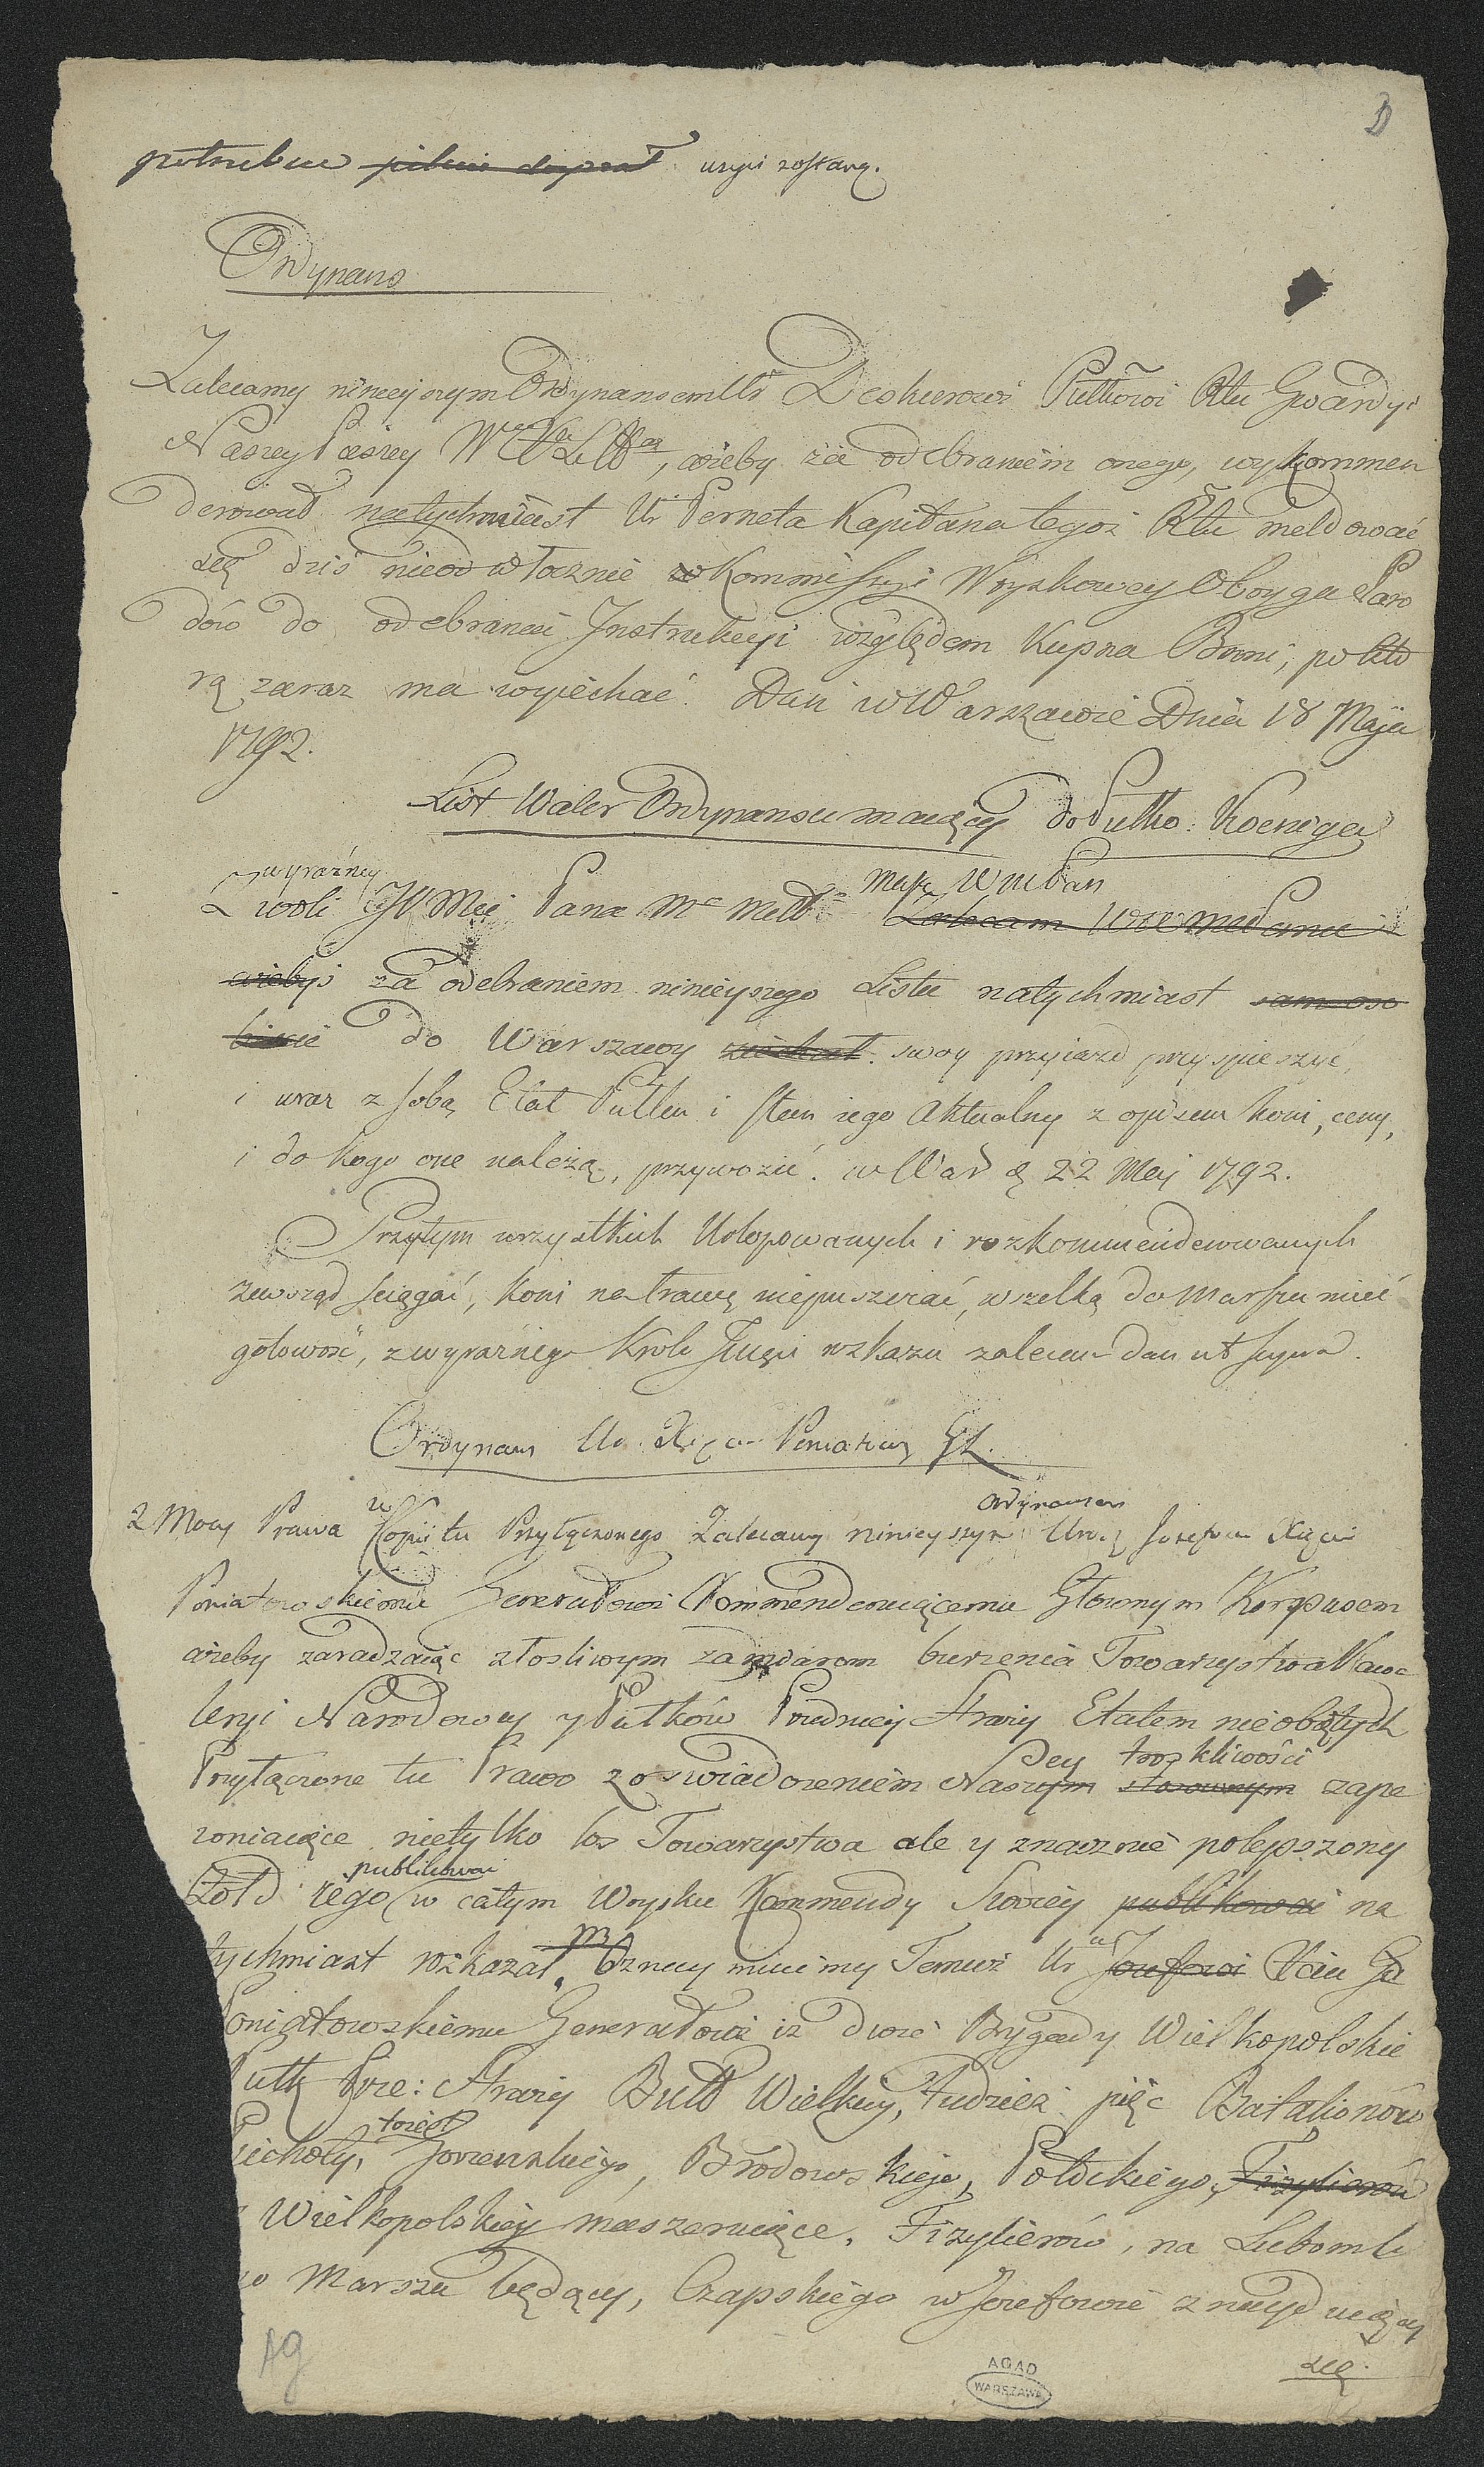 potrzebne pilnie dopeał użyci zostaną.
Ordynans
Zalecamy ninieyszym Ordynansem Ur Deskurowi Pułkowi Rtu Gwardyi
Naszey Pieszey W W X Litt, ażeby za odebraniem onego, wykommen
derował natychmiast Ur Perneta Kapitana tegoż Rtu meldować
się dziś nieodwłocznie w Kommissyi Woyskowey Oboyga Naro
dów do odebrania Instrukcyi względem Kupna Broni, po któ
rą zaraz ma wyiechać. Dan w Warszawie Dnia 18 Maja
1792.
List Walor Ordynansu maiący do Pułko: Koeniga
wyraźney
Z woli JKMci Pana Mo Miłł Zalecam WWMPanu
masz WMPan
ażebyś za odebraniem ninieyszego Listu natychmiast samoso
biście do Warszawy ziechał. swoy przyiazd przyspieszyć,
i wraz z sobą Etat Pułku i stan iego Aktualny z opisem koni, ceny,
i do kogo one należą, przywozić. w War d 22 Maj 1792.
Przytym wszystkich Urlopowanych i rozkommenderowanych
zewsząd ściągać, koni na trawę niepuszczać, wszelką do Marszu mieć
gotowość, z wyraźnego Króla Jmci rozkazu zalecam dan ut supra.
Ordynans Ur. Xięciu Poniatows GL.
Z Mocy Prawa w Kopii tu Przyłączonego Zalecamy ninieyszym Ordynansem Urod Jozefowi Xięciu
Poniatowskiemu Generałowi Kommenderuiącemu Głownym Korpusem
ażeby zaradzaiąc złosliwym zamiarom burzenia Towarzystwa Kawa
leryi Narodowey y Pułków Przedniey Straży Etatem nieobiętych
Przyłączone tu Prawo z oświadczeniem Naszym stosownym zape
szey troskliwości
wniaiące nietylko los Towarzystwa ale y znacznie polepszony
Żołd iego publikować w całym Woysku Kommendy Swoiey publikować na
tychmiast rozkazał. Oznaymuiemy Temuż Ur Jozefowi Xciu
Poniatowskiemu Generałowi iż dwie Brygady Wielkopolskie
Pułk Prze: Straży Buł Wielkiey, tudzież pięć Batalionów
Piechoty, to iest Gorzenskiego, Brodowskiego, Potockiego, Fizylierów
z Wielkopolskiey maszeruiące, Fizylierów, na Luboml
w Marszu będący, Czapskiego w Jozefowie znayduiący
się.
Ag
AGAD
WARSZAWA